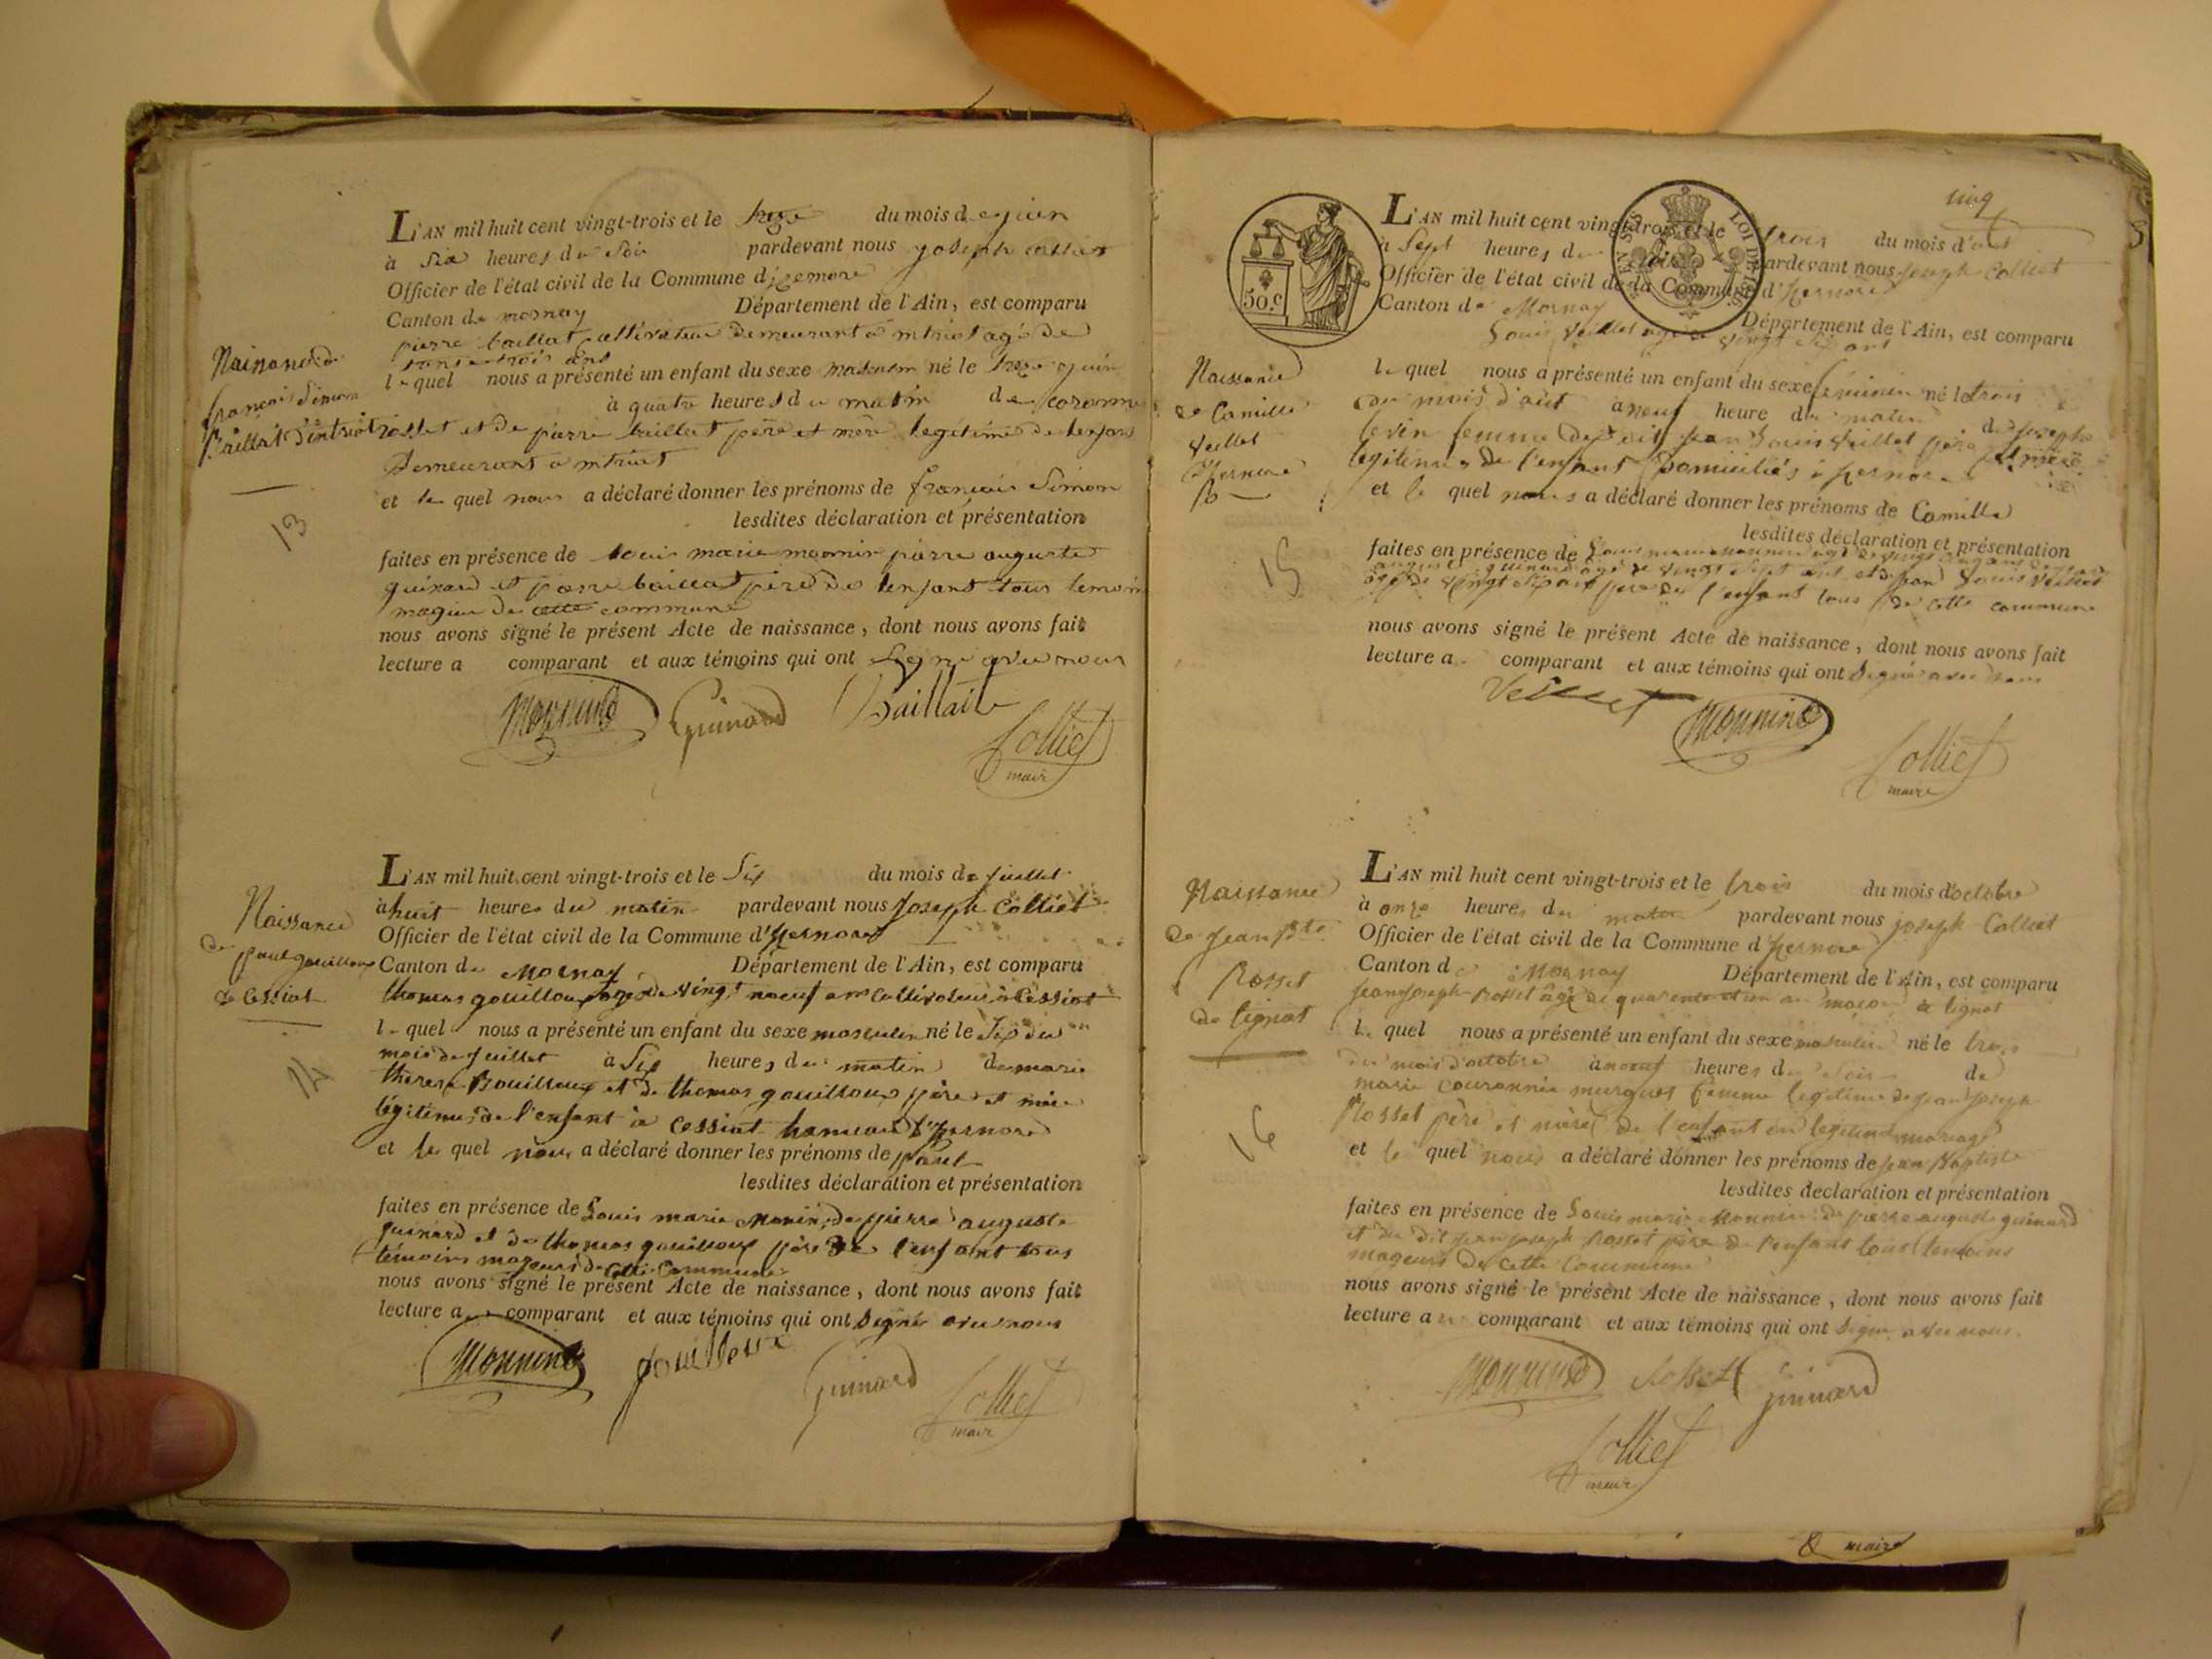 L'AN mil huit cent vingt-trois et le treze du mois de juin
à six heures du soir pardevant nous joseph colliet
Officier de l'état civil de la Commune d'izernore
Canton de mornay Département de l'Ain, est comparu
pierre baillat cultivateur demeurant a intriat agé de
trente trois ans
le quel nous a présenté un enfant du sexe masculin né le treze juin
à quatre heures du matin de
rosset et de pierre baillat père et mère legitime de lenfant
Demeurant a intriat
et le quel nous a déclaré donner les prénoms de françois Simon
lesdites déclaration et présentation
faites en présence de Louis marie monnin pierre auguste
guinard et pierre baillat père de lenfant tous temoin
mageur de cette commune
nous avons signé le présent Acte de naissance, dont nous avons fait
lecture a comparant et aux témoins qui ont Signé avec nous
Monnin Guinard Baillat
Colliet
maire
Naissance de
françois Simon
Baillat d'intriat
13
L'AN mil huit cent vingt-trois et le Six du mois de juillet
à huit heures du matin pardevant nous Joseph Colliet
Officier de l'état civil de la Commune d'Izernore
Canton de Mornay Département de l'Ain, est comparu
thomas gouilloux agé de vingt neuf ans Cultivateur à Cessiat
le quel nous a présenté un enfant du sexe masculin né le Six du
mois de Juillet à Six heures du matin de marie
therese Bouilloux et de thomas gouilloux père et mère
légitimes de l'enfant à Cessiat hameau d'Izernore
et le quel nous a déclaré donner les prénoms de Paul
lesdites déclaration et présentation
faites en présence de Louis marie Monin, de pierre auguste
guinard et de thomas gouilloux père de l'enfant tous
témoins mageurs de Cette Commune
nous avons signé le présent Acte de naissance, dont nous avons fait
lecture au comparant et aux témoins qui ont Signé avec nous
Monnin gouilloux Guinard
Colliet
maire
Naissance
de
paul gouilloux
de Cessiat
14
cinq
5
50 c.
LOI DE
L'AN mil huit cent vingt-trois et le trois du mois d'aout
à Sept heures du pardevant nous Joseph Colliet
Officier de l'état civil de la Commune d'Izernore
Canton de Mornay Département de l'Ain, est comparu
Louis Veillet agé de vingt six ans
le quel nous a présenté un enfant du sexe féminin né le trois
du mois d'aout à neuf heure du matin de Josephe
femme Jean Louis Veillet père et mère
légitimes de l'enfant Domiciliés à Izernore
et le quel nous a déclaré donner les prénoms de Camille
lesdites déclaration et présentation
faites en présence de Louis marie monnin agé de vingt
auguste guinard agé de vingt Sept ans et de Jean Louis Veillet
agé de vingt six ans père de l'enfant tous de cette commune
nous avons signé le présent Acte de naissance, dont nous avons fait
lecture a comparant et aux témoins qui ont Signé avec nous
Veillet Monnin
Colliet
maire
Naissance
de Camille
Veillet
d'Izernore
15
L'AN mil huit cent vingt-trois et le trois du mois d'octobre
à onze heures du matin pardevant nous joseph Colliet
Officier de l'état civil de la Commune d'Izernore
Canton de Mornay Département de l'Ain, est comparu
Jean Joseph Rosset âgé de quarente et un an maçon à tignat
le quel nous a présenté un enfant du sexe masculin né le trois
du mois d'octobre à neuf heures du Soir de
marie Couronnée murguet femme legitime de Jean Joseph
Rosset père et mère de l'enfant en legitime mariage
et le quel nous a déclaré donner les prénoms de Jean Baptiste
lesdites declaration et présentation
faites en présence de Louis marie Monnin, de pierre auguste guinard
et du dit jean joseph Rosset père de l'enfant tous temoins
mageurs de cette Commune
nous avons signé le présent Acte de naissance, dont nous avons fait
lecture au comparant et aux témoins qui ont Signé avec nous
Monnin Rosset Guinard
Colliet
maire
Naissance
de Jean Bte
Rosset
de tignat
16
maire